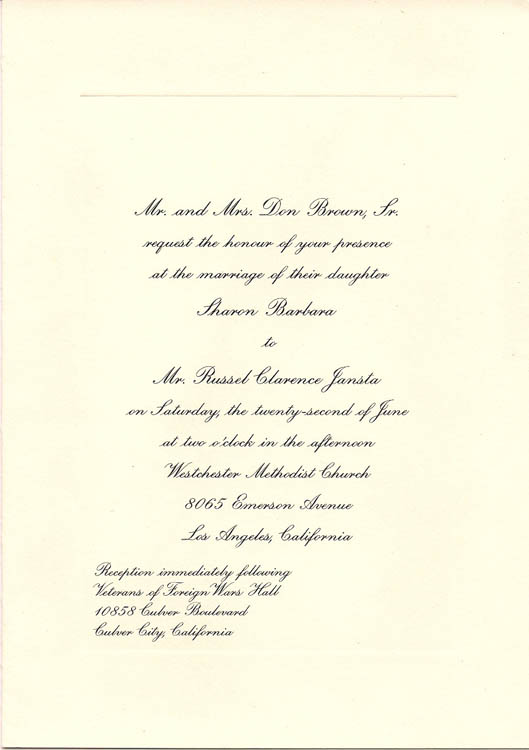 Mr. and Mrs. Don Brown, Sr.
request the honour of your presence
at the marriage of their daughter
Sharon Barbara
to
Mr. Russel Clarence Jansta
on Saturday, the twenty-second of June
at two o'clock in the afternoon
Westchester Methodist Church
8065 Emerson Avenue
Los Angeles, California
Reception immediately following
Veterans of Foreign Wars Hall
10858 Culver Boulevard
Culver City, California